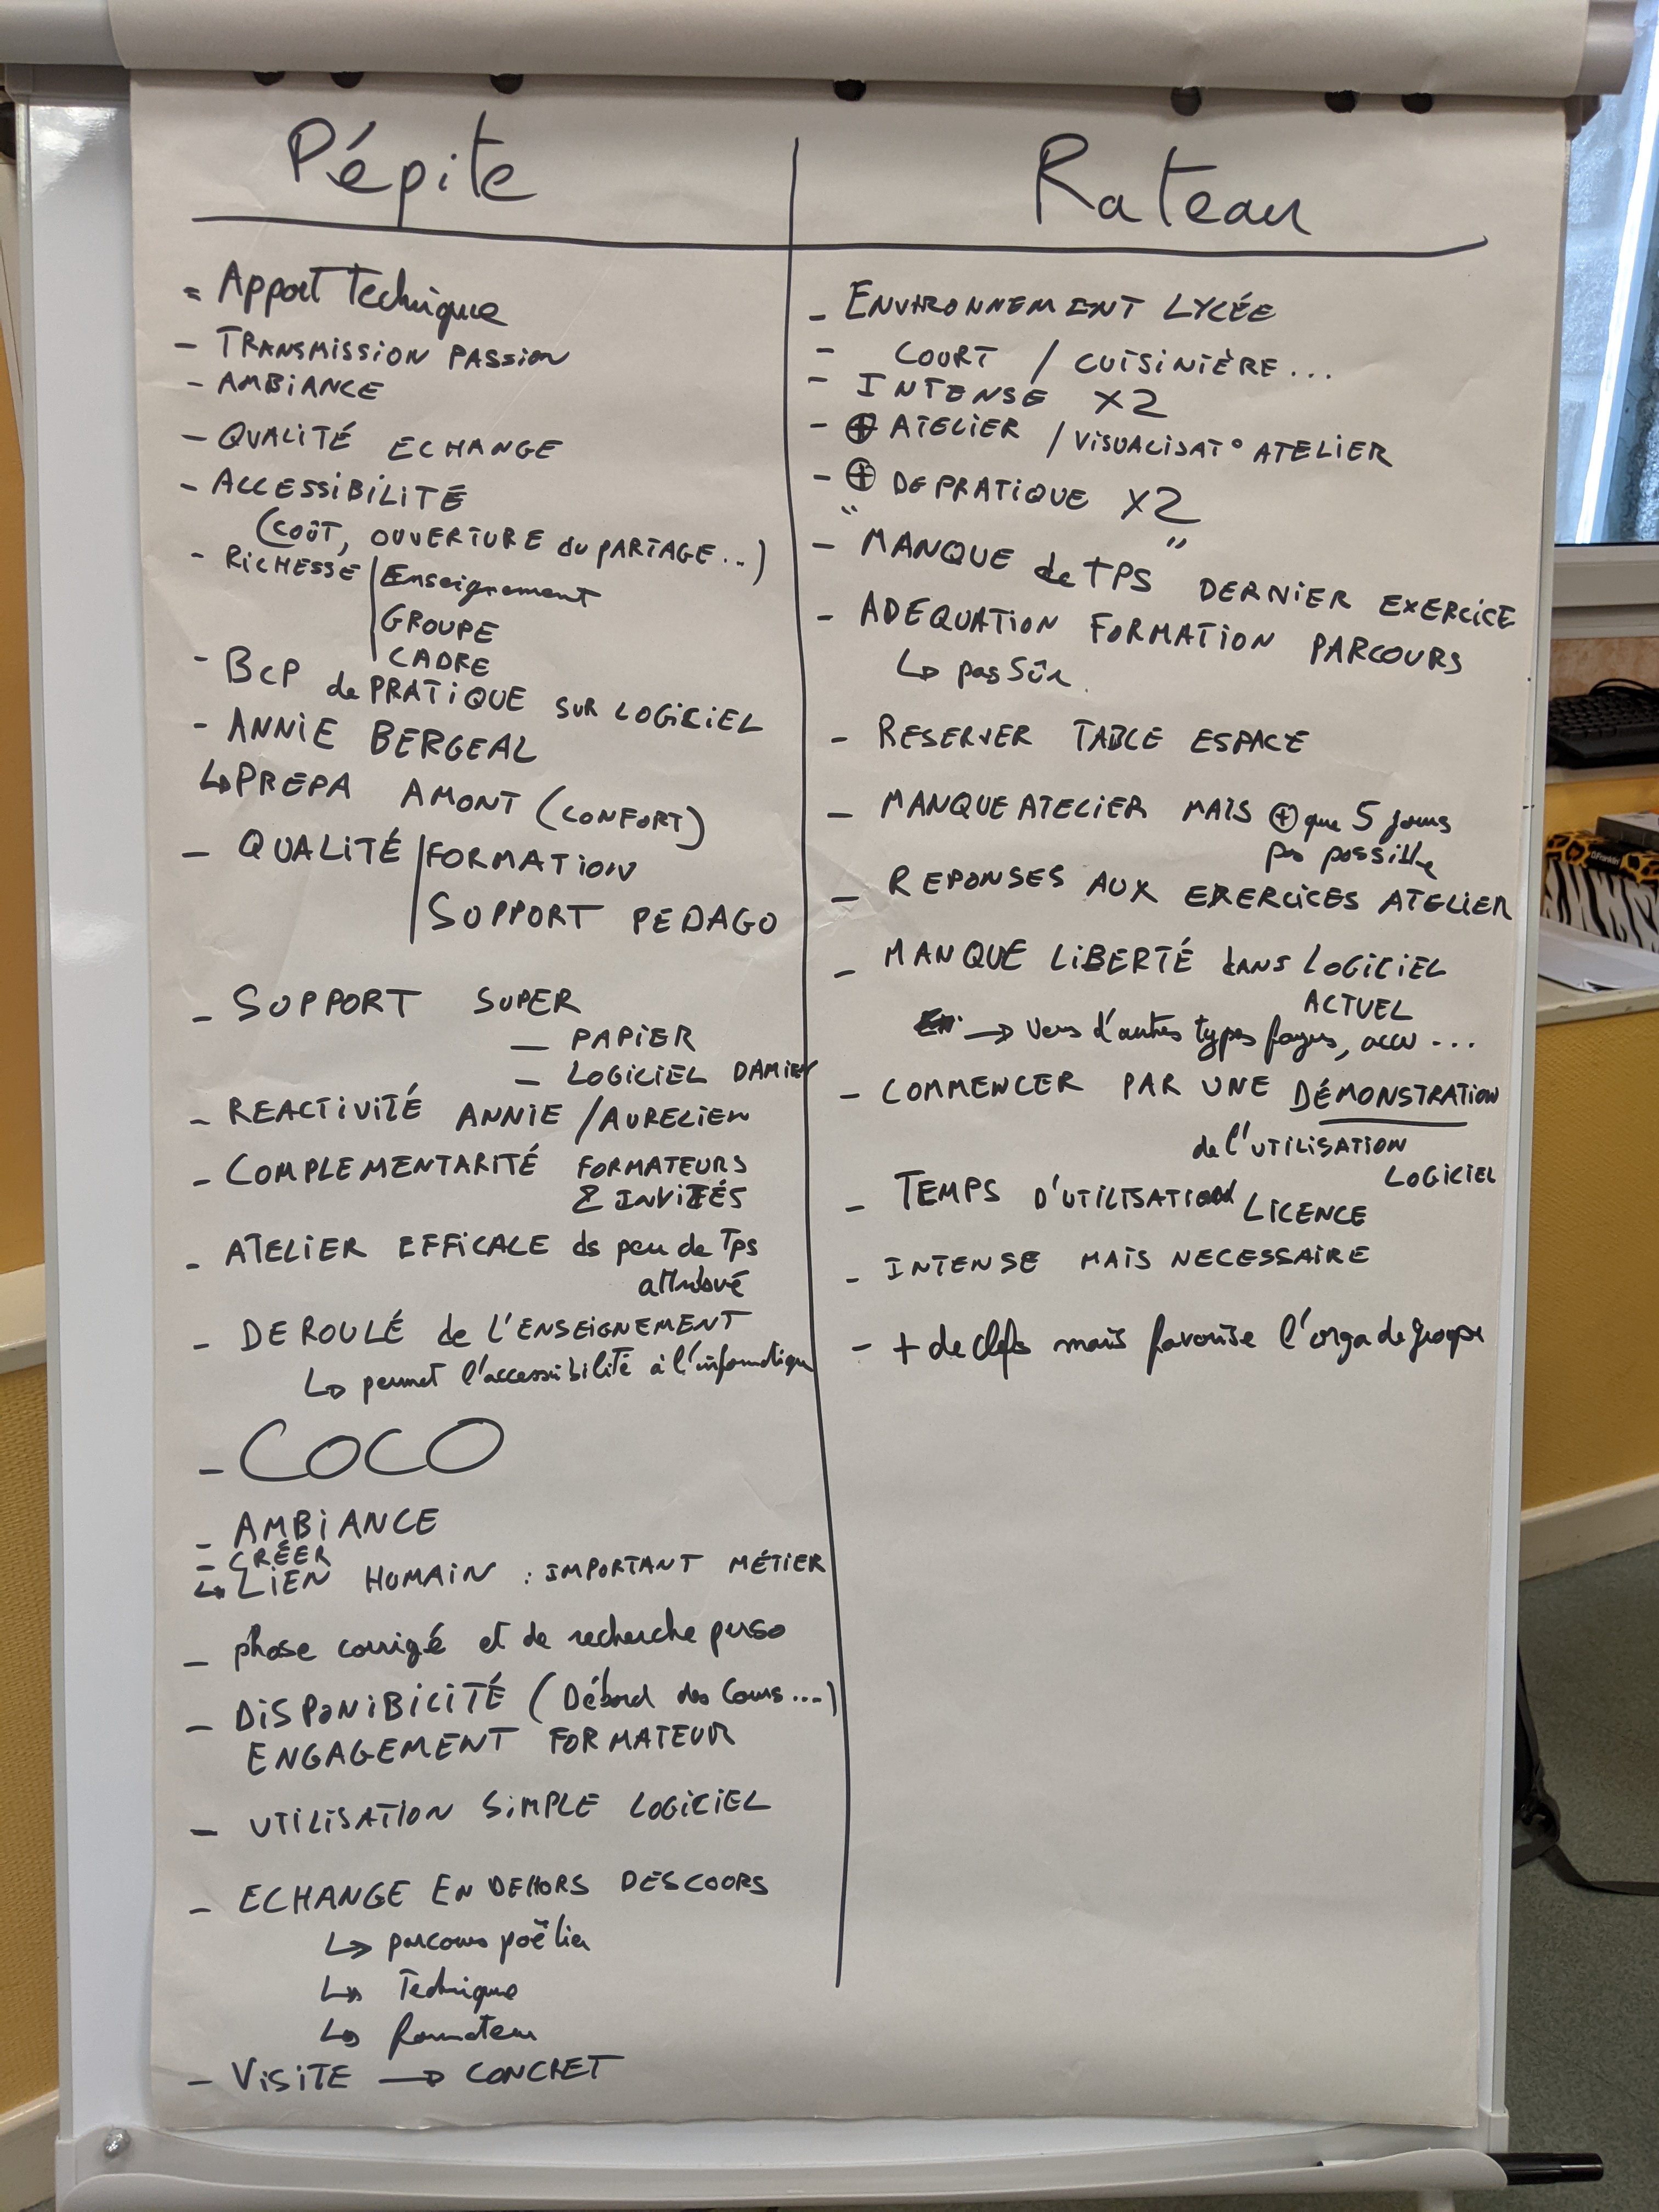 Pépite
= Apport Technique
- TRANSMISSION PASSION
- AMBIANCE
- QUALITÉ ECHANGE
- ACCESSIBILITÉ
(COÛT, OUVERTURE du PARTAGE...)
- RICHESSE | Enseignement
GROUPE
CADRE
- BCP de PRATIQUE SUR LOGICIEL
- ANNIE BERGEAL
↳ PREPA AMONT (CONFORT)
- QUALITÉ | FORMATION
SUPPORT PEDAGO
- SUPPORT SUPER
- PAPIER
- LOGICIEL DAMIEN
- REACTIVITÉ ANNIE / AURELIEN
- COMPLEMENTARITÉ FORMATEURS
& INVITÉS
- ATELIER EFFICALE ds peu de Tps
attribué
- DEROULÉ de L'ENSEIGNEMENT
↳ permet l'accessibilité à l'informatique
- COCO
- AMBIANCE
- CRÉER
↳ LIEN HUMAIN : IMPORTANT MÉTIER
- phase corrigé et de recherche perso
- DISPONIBILITÉ (Débord des Cours....)
ENGAGEMENT FORMATEUR
- UTILISATION SIMPLE LOGICIEL
- ECHANGE EN DEHORS DES COORS
↳ parcours poêlier
↳ Technique
↳ formateur
- VISITE → CONCRET
Rateau
- ENVIRONNEMENT LYCÉE
- COURT / CUISINIÈRE...
- INTENSE X2
- ⊕ ATELIER / VISUALISAT° ATELIER
- ⊕ DE PRATIQUE X2
- "MANQUE de TPS" DERNIER EXERCICE
- ADEQUATION FORMATION PARCOURS
↳ pas Sûr.
- RESERVER TABLE ESPACE
- MANQUE ATELIER MAIS ⊕ que 5 jours
pas possible
- REPONSES AUX EXERCICES ATELIER
- MANQUE LIBERTÉ dans LOGICIEL
ACTUEL
→ Vers d'autres types foyers, accu ...
- COMMENCER PAR UNE DÉMONSTRATION
de l'UTILISATION
LOGICIEL
- TEMPS D'UTILISATION LICENCE
- INTENSE MAIS NECESSAIRE
- + de clefs mais favorise l'orga de groupe